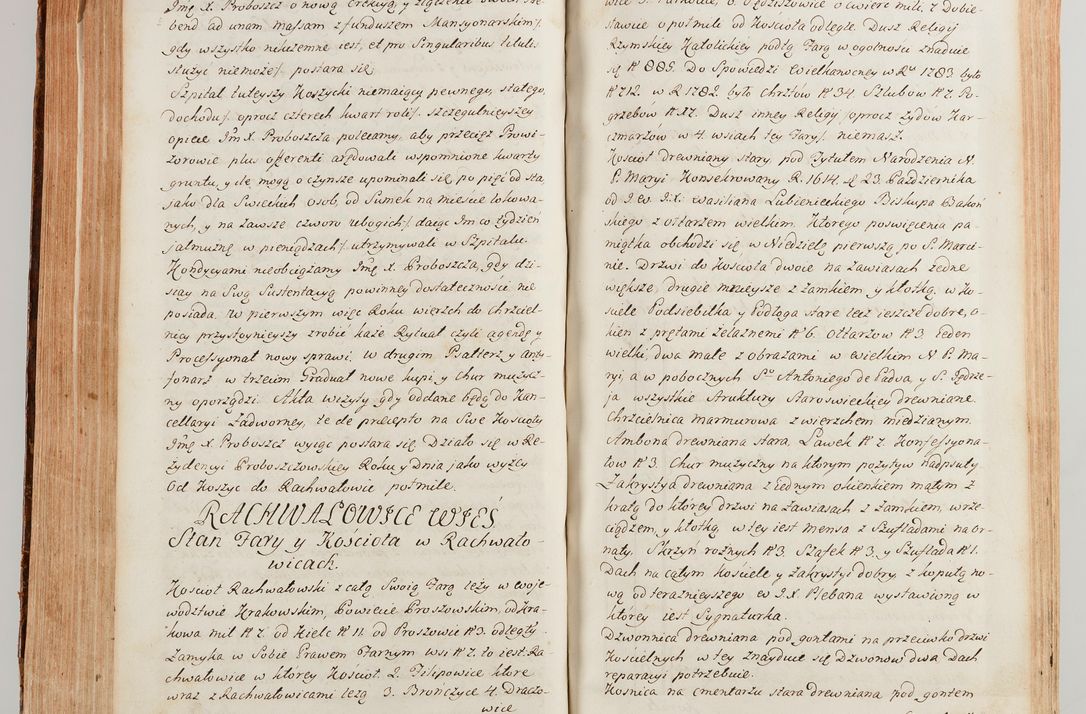 Jmę X. Proboszcz o nową Erekcyą, y złączenie
bend ad unam massam z funduszem Mansyonarskim/.
gdy wszystko nikczemne iest, et pro Singularibus titulis
służyc niemoże/. postara się.
Szpital tuteyszy Koszycki niemaiący pewnego, stałego,
dochodu/. oprocz czterech kwart roli/. szczegulnieyszey
opiece Jm X. Proboszcza polecamy, aby przeciez Prowi-
zorowie plus offerenti arędowali wspomnione kwarty
gruntu, y ile mogą o czynsze upominali się, po pięć od sta,
jako dla Swieckich osob, od Summ na mieście lokowa-
nych, y na zawsze czworo ubogich/. daiąc Jm co tydzień
jałmużnę w pieniądzach/. utrzymywali w Szpitalu.
Kondycyami nieobciążamy Jmę X. Proboszcza, gdy dzi-
siay na Swą Sustentacyą powinney dostateczności nie
posiada. W pierwszym więc Roku wierzch do chrzciel-
nicy przystoynieyszy zrobić każe Rytuał czyli agendę y
Processyonał nowy sprawi, w drugim Psałterz y anty-
fonarz w trzecim Graduał nowe kupi, y Chur muzycz-
ny oporządzi. Akta wizyty gdy oddane będą do Kan-
cellaryi Zadworney, te de præcepto na Swe Koscioły
Jmę X. Proboszcz wyiąc postara się. Działo się w Re-
zydencyi Proboszczowskiey Roku y Dnia jako wyzey
Od Koszyc do Rachwałowic puł mile.
RACHWALOWICE WIEŚ
Stan Fary y Kościoła w Rachwało-
wicach.
Kościoł Rachwałowski z całą Swoią Farą leży w Woje-
wodztwie Krakowskim, Powiecie Proszowskim, od Kra-
kowa mil N 7. od Kielc N 11. od Proszowic N 3. odległy.
Zamyka w Sobie Prawem Farnym wsi N 7. to iest Ra-
chwałowice w ktorey Kościoł 2. Filipowice ktore
wraz z Rachwałowicami lezą 3. Brończyce 4. Draczo-
wice
sławice o pół mile od Kościoła odległe. Dusz Religij
Rzymskiey Katolickiey podłg Farę w ogolności znaduie
się N 885. Do Spowiedzi Wielkanocney w Ru 1783 było
N 712. w R 1782. było Chrztow N 34. Szlubow N 7. Po-
grzebow N 27. Dusz inney Religij /oprocz żydow Kar-
czmarzow w 4. wsiach tey Fary/. niemasz.
Kościoł drewniany stary, pod Tytułem Narodzenia N.
P. Maryi Konsekrowany R. 1614. d 23. Października
od J. W. J.X. Waliliana Lubienieckiego Biskupa Bakoń
skiego z ołtarzem wielkim, ktorego poswięcenia pa-
miątka obchodzi się w Niedzielę pierwszą po S. Marci-
nie. Drzwi do Kościoła dwoie na zawiasach iedne
większe, drugie mnieysze z zamkiem y kłotką, w Ko-
ściele Podsiebitka y Podłoga stare lecz ieszcze dobre, o-
kien z prętami żelaznemi N 6. Ołtarzow N 3. Jeden
wielki, dwa małe z obrazami w Wielkim N P. Ma-
ryi, a w pobocznych So Antoniego de Padua, y S. Jędrze-
ja wszystkie struktury Staroswieckiey drewniane.
Chrzcielnica marmurowa z wierzchem miedzianym.
Ambona drewniana stara, Ławek N 7. Konfessyona-
łow N 3. Chur muzyczny na ktorym pozytyw nadpsuty.
Zakrystya drewniana z iednym okienkiem małym z
kratą do ktorey drzwi na zawiasach z zamkiem, wrze-
ciądzem, y kłotką, w tey iest mensa z Szufladami na or-
naty, Skrzyń rożnych N 3. Szafek N 3. y Szuflada N 1.
Dach na całym kościele y zakrystyi dobry, z kopułą no-
wą od terazniejszego W JX. Plebana wystawioną w
ktorey iest Sygnaturka.
Dzwonnica drewniana pod gontami na przeciwko drzwi
Kościelnych w tey znayduie się Dzwonow dwa, Dach
reparacyi potrzebuie.
Kosnica na cmentarzu stara drewniana pod gontem